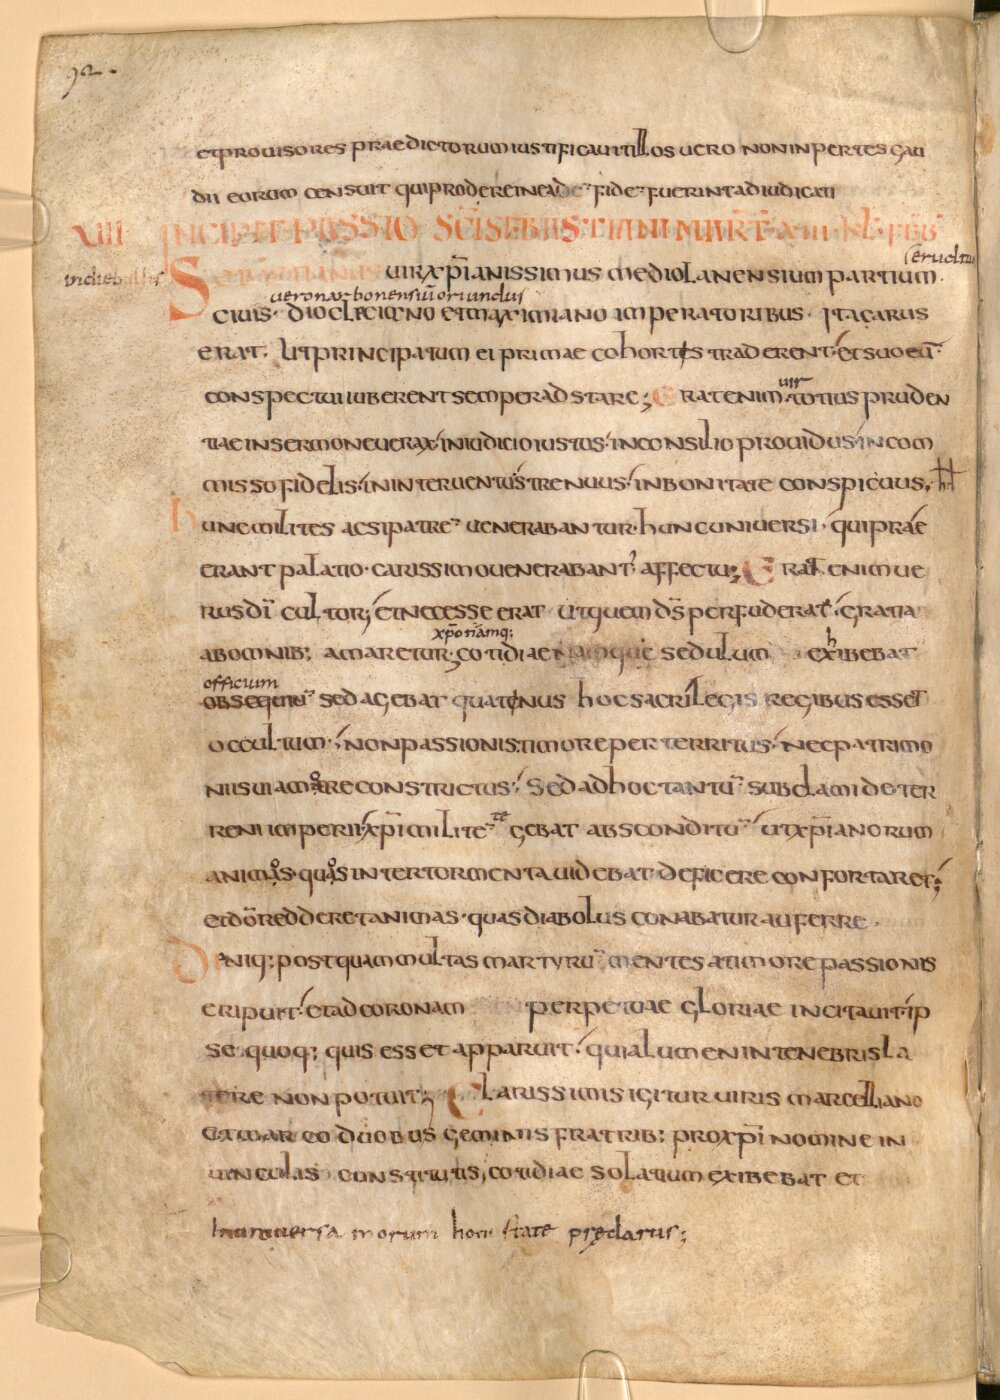 92.
et prouisores praedictorum iustificauit illos uero non inpertes gau
dii eorum censuit qui prodere inea de fide fuerint adiudicati
XIIII INCIPIT PASSIO SC̄I SEBASTIANI MART̄ XIII KL̄ FEB̄
eruditus
S uir xp̄ianissimus mediolanensium partium
in diebus
ueronae bonensiū oriundus
ciuis · diocleciano et maximiano imperatoribus · ita carus
erat · ut principatum ei primae cohortis traderent · et suo eū
conspectui iuberent semper adstare ; Erat enim uir totius pruden
tiae in sermone uerax · in iudicio iustus · in consilio prouidus · in com
misso fidelis · in interuentu strenuus · in bonitate conspicuus ·
hunc milites ac si patrē uenerabantur · hunc uniuersi · qui prae
erant palatio · carissimo uenerabant' affectu ; Erat enim ue
rus dī cultor ; et necesse erat ut quem ds̄ perfuderat · gratia
xp̄o etiamq;
h
ab omnib; amaretur ; cotidiae namque sedulum exibebat
officium
obsequiū sed agebat quatenus hoc sacrilegis regibus esset
occultum · non passionis timore perterritus · nec patrimo
nii sui amore constrictus · sed ad hoc tantū sub clamide ter
te
reni imperii xp̄i militē gebat absconditū · ut xp̄ianorum
animos · quos inter tormenta uidebat deficere confortaret ;
et dō redderet animas · quas diabolus conabatur auferre ·
Deniq; postquam multas martyrū mentes a timore passionis
eripuit · et ad coronam perpetuae gloriae incitauit · ip
se quoq; quis esset apparuit · quia lumen in tenebris la
tere non potuit ; Clarissimis igitur uiris marcelliano
et marco duobus geminis fratrib; pro xp̄i nomine in
uinculis constitutis, cotidiae solatium exibebat et
uniuersa morum honestate preclarus ;